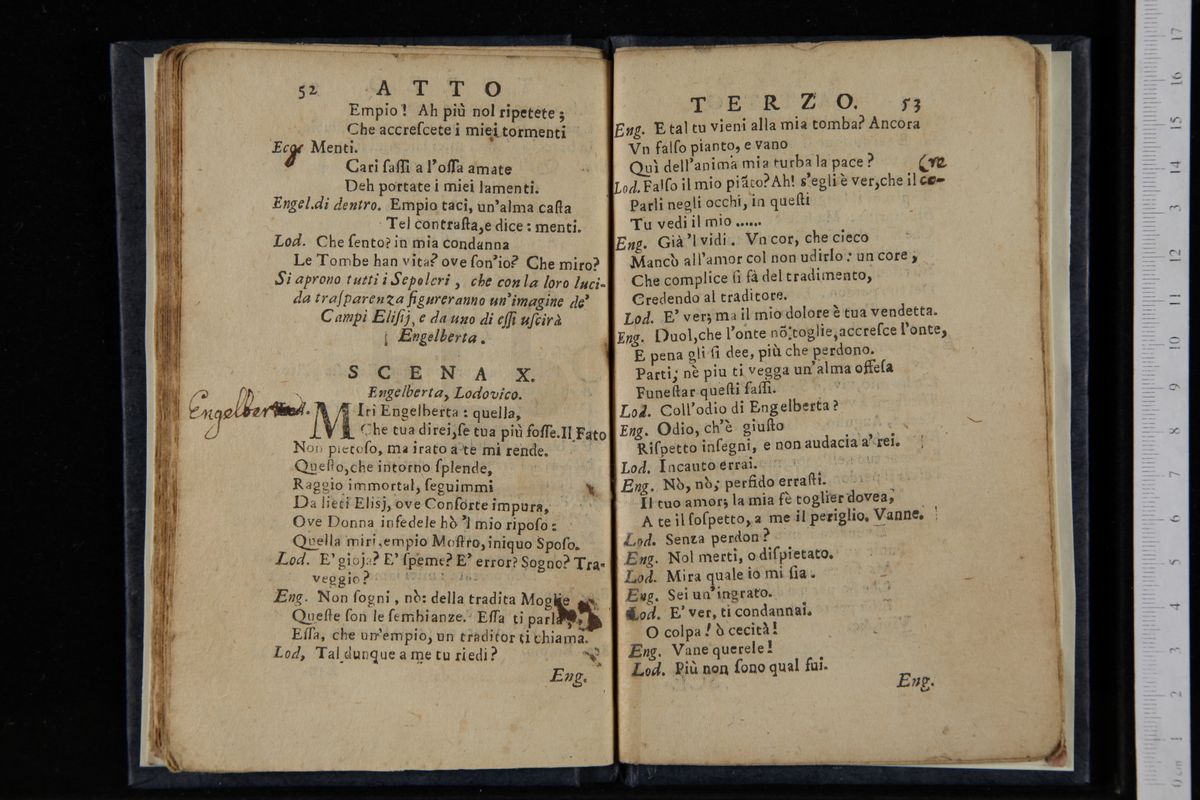 52 ATTO
Empio! Ah più nol ripetete;
Che accreſcete i miei tormenti
Menti.
Cari ſaſſi a l'oſſa amate
Deh portate i miei lamenti.
Engel.di dentro. Empio taci, un'alma caſta
Tel contraſta,e dice: menti.
Lod. Che ſento? in mia condanna
Le Tombe han vita? ove ſon'io? Che miro?
Si aprono tutti i Sepolcri, che con la loro luci-
da traſparenza figureranno un'imagine de'
Campi Eliſij, e da uno di eſſi uſcirà
Engelberta.
SCENA X.
Engelberta, Lodovico.
Engelberta.
MIri Engelberta: quella,
Che tua direi,ſe tua più foſſe.Il Fato
Non pietoſo, ma irato a te mi rende.
Queſto,che intorno ſplende,
Raggio immortal, ſeguimmi
Da lieti Elisj, ove Conſorte impura,
Ove Donna infedele hò 'l mio ripoſo:
Quella miri,empio Moſtro,iniquo Spoſo.
Lod. E' gioja? E' ſpeme? E' error? Sogno? Tra-
veggio?
Eng. Non ſogni, nò: della tradita Moglie
Queſte ſon le ſembianze. Eſſa ti parla,
Eſſa, che un'empio, un traditor ti chiama.
Lod, Tal dunque a me tu riedi?
Eng.
TERZO. 53
Eng. E tal tu vieni alla mia tomba? Ancora
Vn falſo pianto, e vano
Quì dell'anima mia turba la pace? (re
Lod. Falſo il mio piãto? Ah! s'egli è ver,che il co-
Parli negli occhi, in queſti
Tu vedi il mio ......
Eng. Già 'l vidi. Vn cor, che cieco
Mancò all'amor col non udirlo: un core,
Che complice ſi fà del tradimento,
Credendo al traditore.
Lod. E' ver; ma il mio dolore è tua vendetta.
Eng. Duol,che l'onte nõ toglie,accreſce l'onte,
E pena gli ſi dee, più che perdono.
Parti; nè piu ti vegga un'alma offeſa
Funeſtar queſti ſaſſi.
Lod. Coll'odio di Engelberta?
Eng. Odio, ch'è giuſto
Riſpetto inſegni, e non audacia a' rei.
Lod. Incauto errai.
Eng. Nò, nò; perfido erraſti.
Il tuo amor; la mia fè toglier dovea,
A te il ſoſpetto, a me il periglio. Vanne.
Lod. Senza perdon?
Eng. Nol merti, o diſpietato.
Lod. Mira quale io mi ſia.
Eng. Sei un'ingrato.
Lod. E' ver, ti condannai.
O colpa! ò cecità!
Eng. Vane querele!
Lod. Più non ſono qual fui.
Eng.